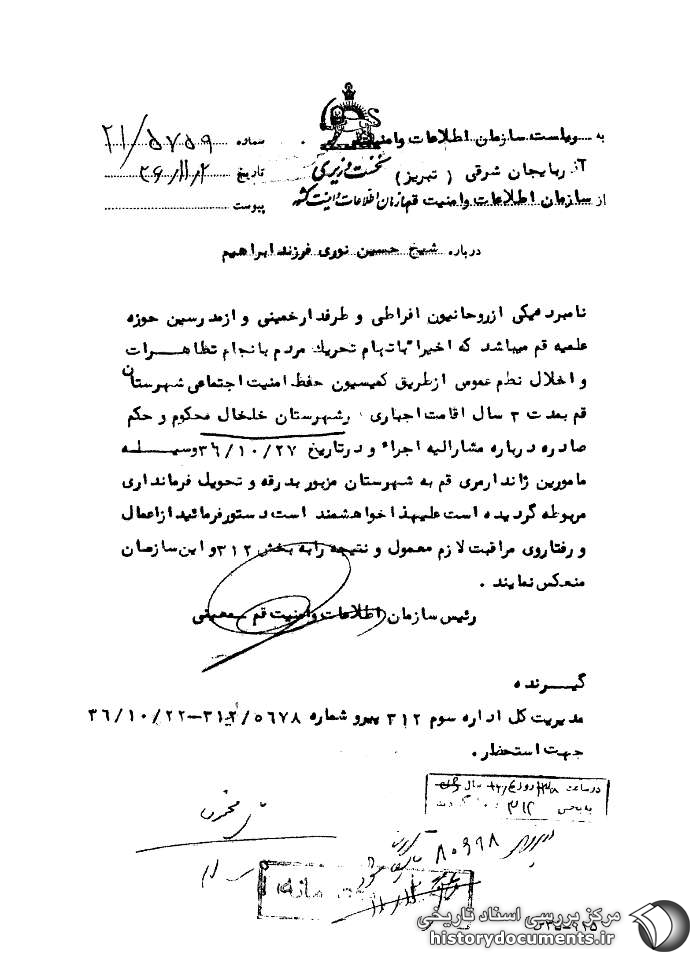 به ریاست سازمان اطلاعات وامنیت
شماره ۲۱/۵۷۵۹
آذربایجان شرقی ( تبریز )
نخست وزیری
تاریخ ۳۶/۱۱/۲
از سازمان اطلاعات وامنیت قم
سازمان اطلاعات و امنیت کشور
پیوست
درباره شیخ حسین نوری فرزند ابراهیم
نامبرده یکی از روحانیون افراطی و طرفدار خمینی و از مدرسین حوزه
علمیه قم میباشد که اخیرا باتهام تحریك مردم بانجام تظاهرات
و اخلال نظم عمومی از طریق کمیسیون حفظ امنیت اجتماعی شهرستان
قم بمدت ۳ سال اقامت اجباری در شهرستان خلخال محکوم و حکم
صادره درباره مشارالیه اجراء و در تاریخ ۳۶/۱۰/۲۷ وسیله
مامورین ژاندارمری قم به شهرستان مزبور بدرقه و تحویل فرمانداری
مربوطه گردیده است علیهذا خواهشمند است دستور فرمائید از اعمال
و رفتار وی مراقبت لازم معمول و نتیجه را به بخش ۳۱۲ و این سازمان
منعکس نمایند .
رئیس سازمان اطلاعات وامنیت قم معینی
گیرنده
مدیریت کل اداره سوم ۳۱۲ پیرو شماره ۳۱۲/۵۶۷۸-۳۶/۱۰/۲۲
جهت استحضار .
در ساعت روز سال
به بخش ۳۱۲
۸۰۶۹۸
۱۱/۱۲
مرکز بررسی اسناد تاریخی
historydocuments.ir